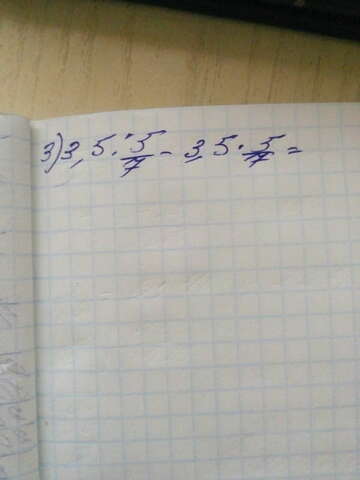 3) 3,5 : 5/7 - 3,5 · 5/7 =